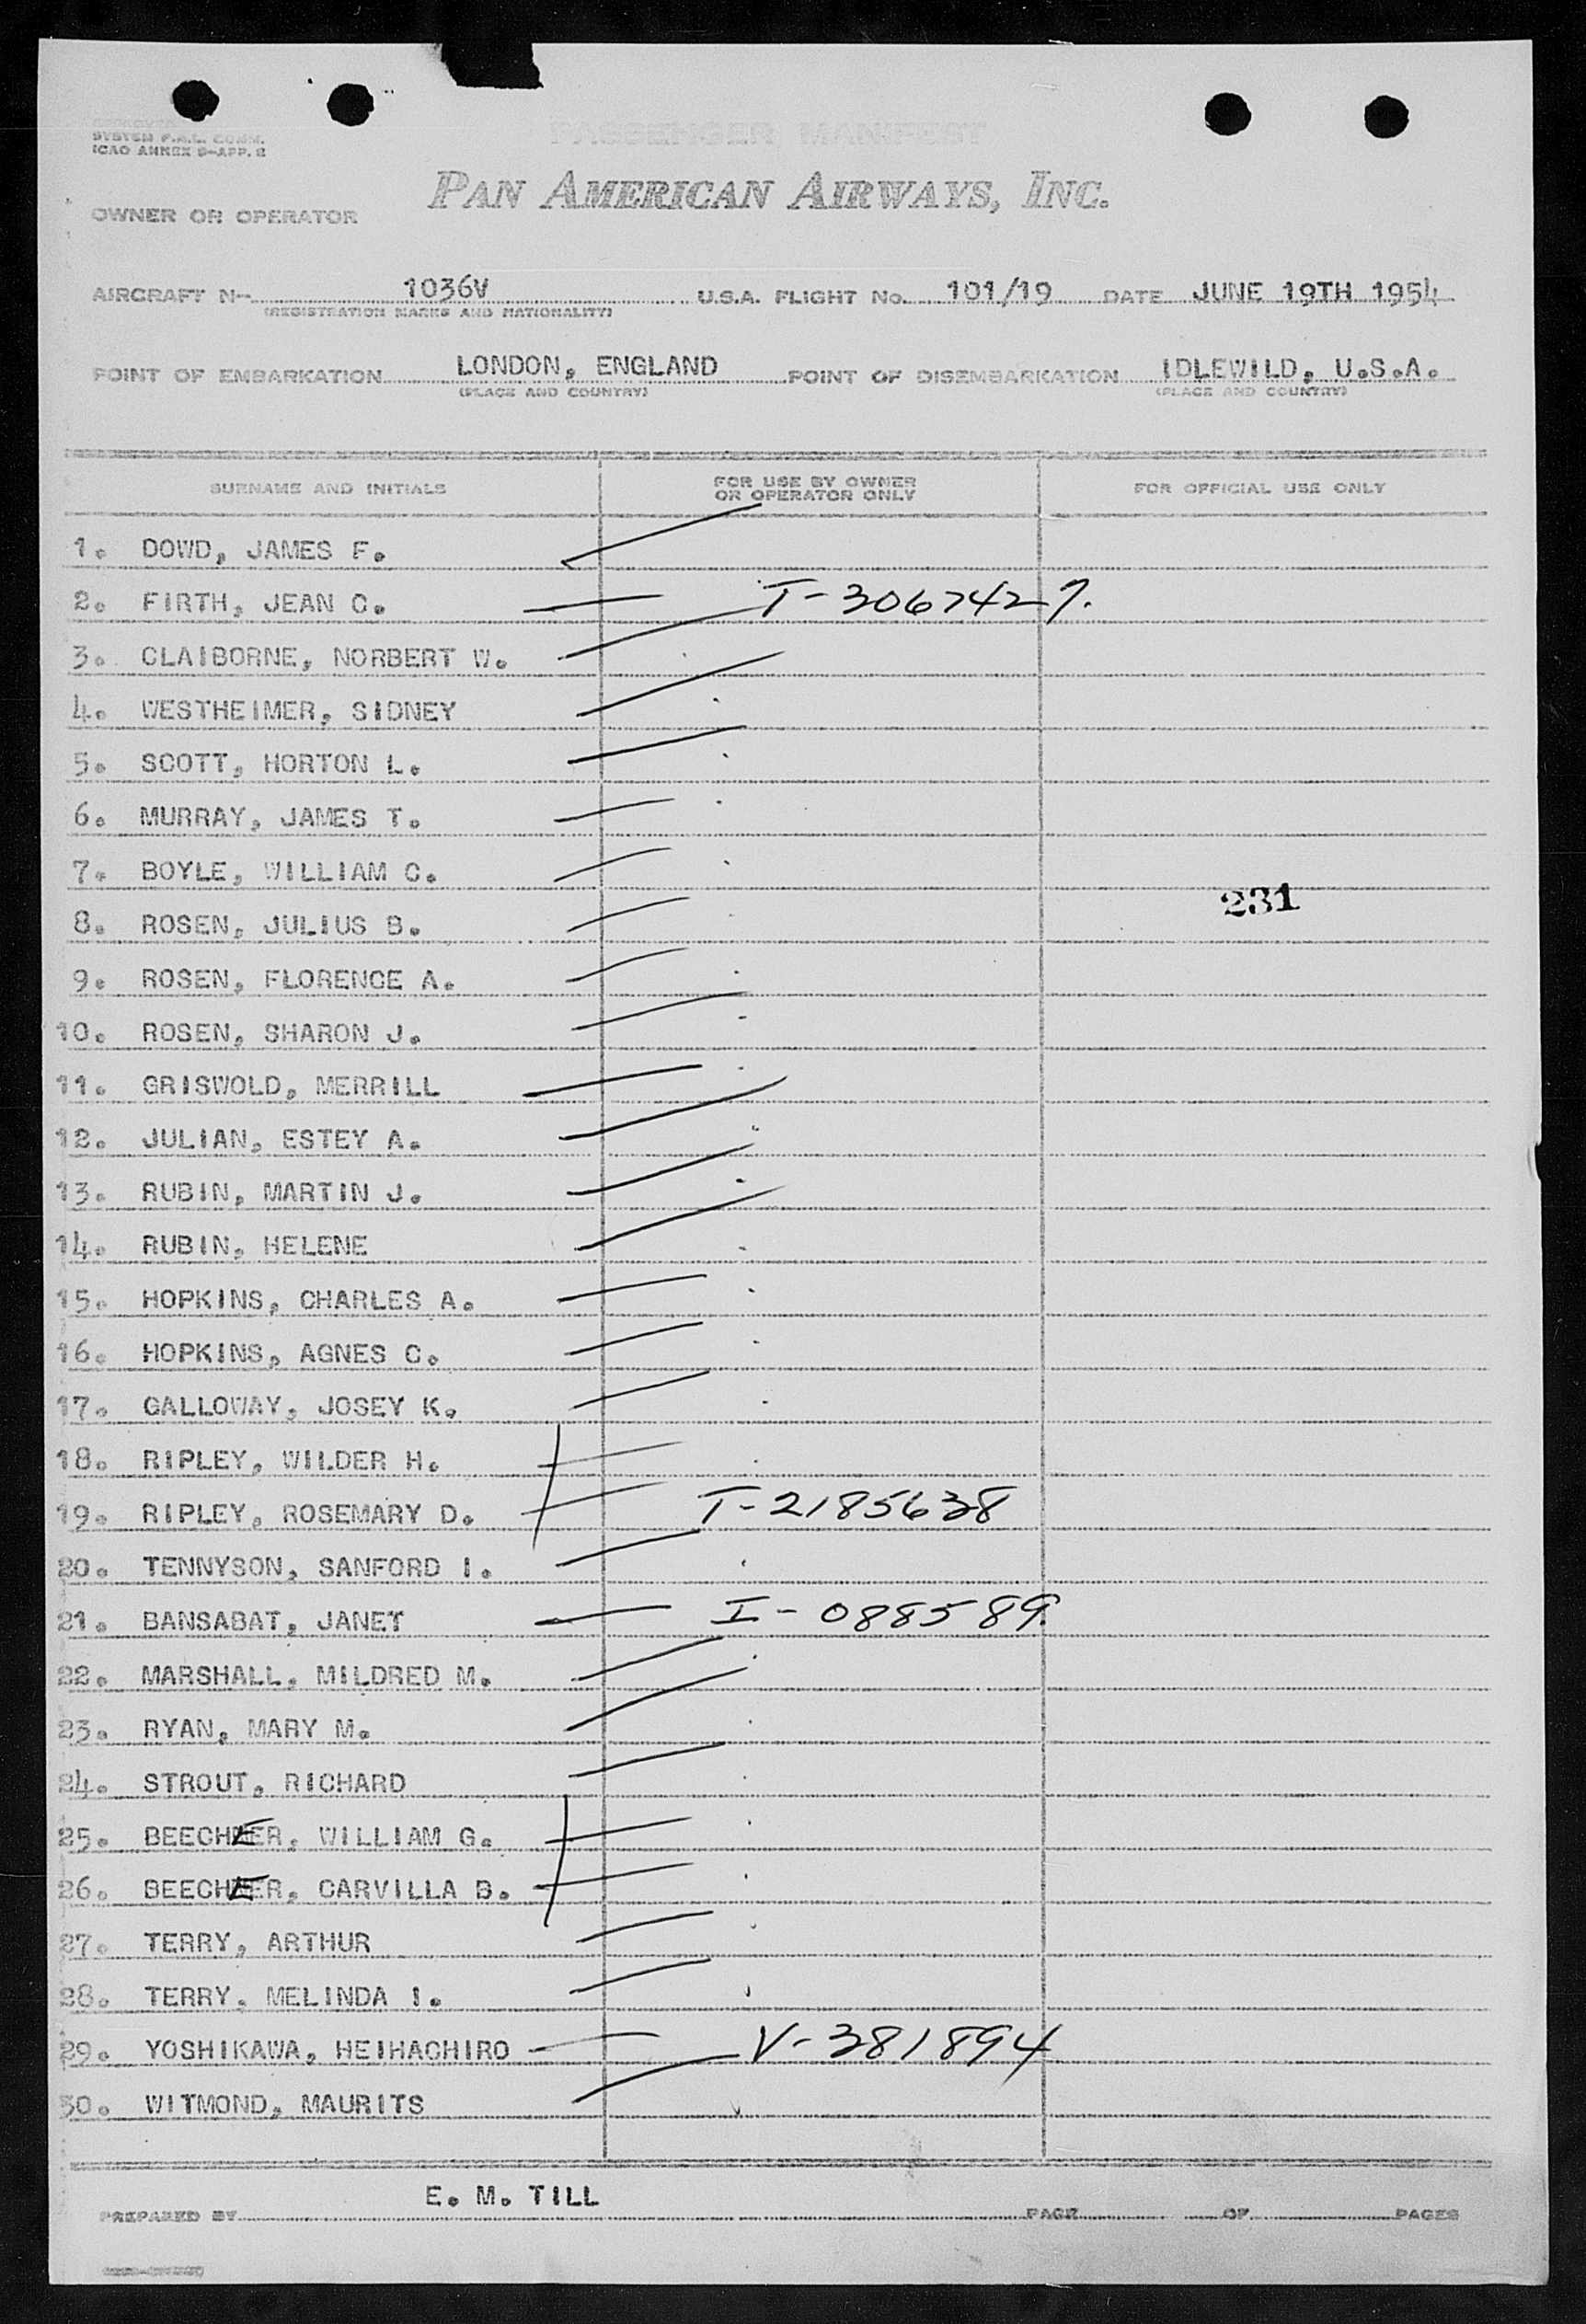 PASSENGER MANIFEST
SYSTEM F.A.L. COMM.
ICAO ANNEX 9-APP. 2
OWNER OR OPERATOR PAN AMERICAN AIRWAYS, INC.
AIRCRAFT N- 1036V U.S.A. FLIGHT No. 101/19 DATE JUNE 19TH 1954
(REGISTRATION MARKS AND NATIONALITY)
POINT OF EMBARKATION LONDON, ENGLAND POINT OF DISEMBARKATION IDLEWILD, U.S.A.
(PLACE AND COUNTRY) (PLACE AND COUNTRY)
SURNAME AND INITIALS FOR USE BY OWNER OR OPERATOR ONLY FOR OFFICIAL USE ONLY
1. DOWD, JAMES F.
2. FIRTH, JEAN C. T-3067427.
3. CLAIBORNE, NORBERT W.
4. WESTHEIMER, SIDNEY
5. SCOTT, HORTON L.
6. MURRAY, JAMES T.
7. BOYLE, WILLIAM C.
231
8. ROSEN, JULIUS B.
9. ROSEN, FLORENCE A.
10. ROSEN, SHARON J.
11. GRISWOLD, MERRILL
12. JULIAN, ESTEY A.
13. RUBIN, MARTIN J.
14. RUBIN, HELENE
15. HOPKINS, CHARLES A.
16. HOPKINS, AGNES C.
17. GALLOWAY, JOSEY K.
18. RIPLEY, WILDER H.
19. RIPLEY, ROSEMARY D. T-2185638
20. TENNYSON, SANFORD I.
21. BANSABAT, JANET I-088589.
22. MARSHALL, MILDRED M.
23. RYAN, MARY M.
24. STROUT, RICHARD
25. BEECHER, WILLIAM G.
26. BEECHER, CARVILLA B.
27. TERRY, ARTHUR
28. TERRY, MELINDA I.
29. YOSHIKAWA, HEIHACHIRO V-381894
30. WITMOND, MAURITS
PREPARED BY E. M. TILL PAGE OF PAGES